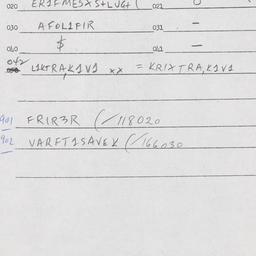 020 ER1FMESXS+LUG+ ( 021 0
030 AFOL1FIR 031 -
040 $ 041 -
042 L1KTRA,K1V1 xx = KRIXTRA,K1V1
901 FRIR3R (/118020
902 VARFT1SAVEK (/166030